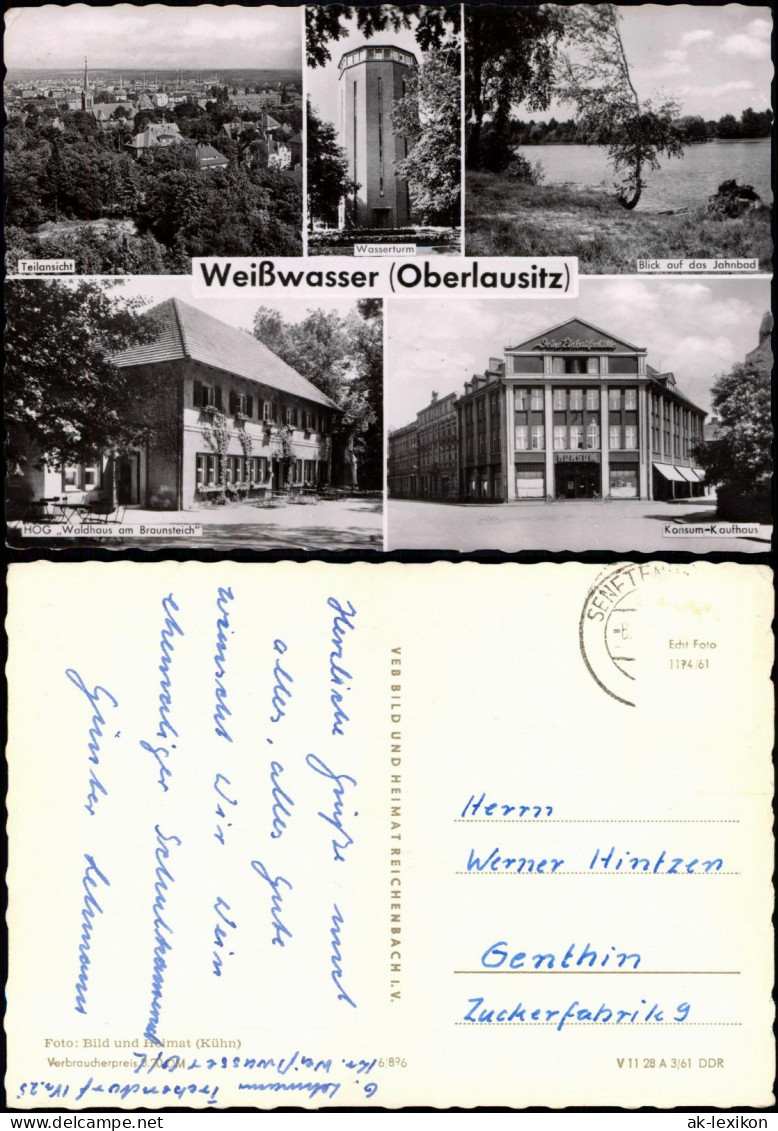 Teilansicht
Wasserturm
Blick auf das Jahnbad
Weißwasser (Oberlausitz)
HOG „Waldhaus am Braunsteich"
KONSUM
Konsum-Kaufhaus
Herzliche Grüße und
alles, alles Gute
wünscht Dir Dein
ehemaliger Schulkamerad
Günter Lehmann
Foto: Bild und Heimat (Kühn)
Verbraucherpreis 0.20 DM
6/896
G. Lehmann
Kr. Weißwasser O/L
VEB BILD UND HEIMAT REICHENBACH I. V.
SENFTEN
Echt Foto
1174/61
Herrn
Werner Hintzen
Genthin
Zuckerfabrik 9
V 11 28 A 3/61 DDR
www.ak-ansichtskarten.de
ak-lexikon